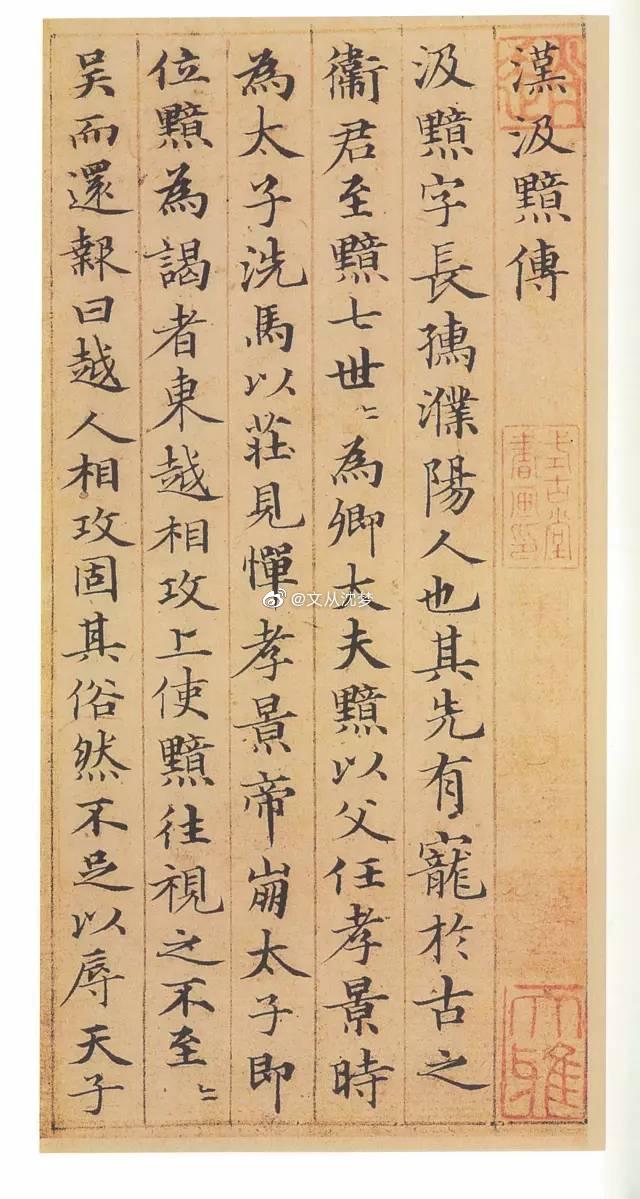 漢汲黯傳
汲黯字長孺濮陽人也其先有寵於古之
衞君至黯七世〻為卿大夫黯以父任孝景時
為太子洗馬以莊見憚孝景帝崩太子即
位黯為謁者東越相攻上使黯往視之不至〻
吴而還報曰越人相攻固其俗然不足以辱天子
式古堂
書画印
大雅
@文从沈梦